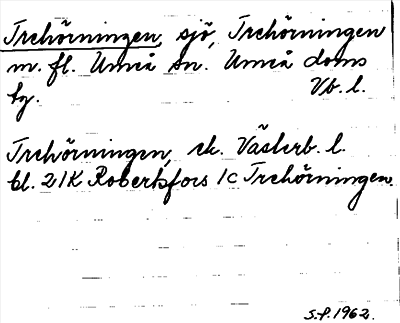 Trehörningen, sjö, Trehörningen
m. fl. Umeå sn. Umeå doms
tg. Vb. l.
Trehörningen, ek. Västerb. l.
bl. 21K Robertsfors 1c Trehörningen.
S.P. 1962.